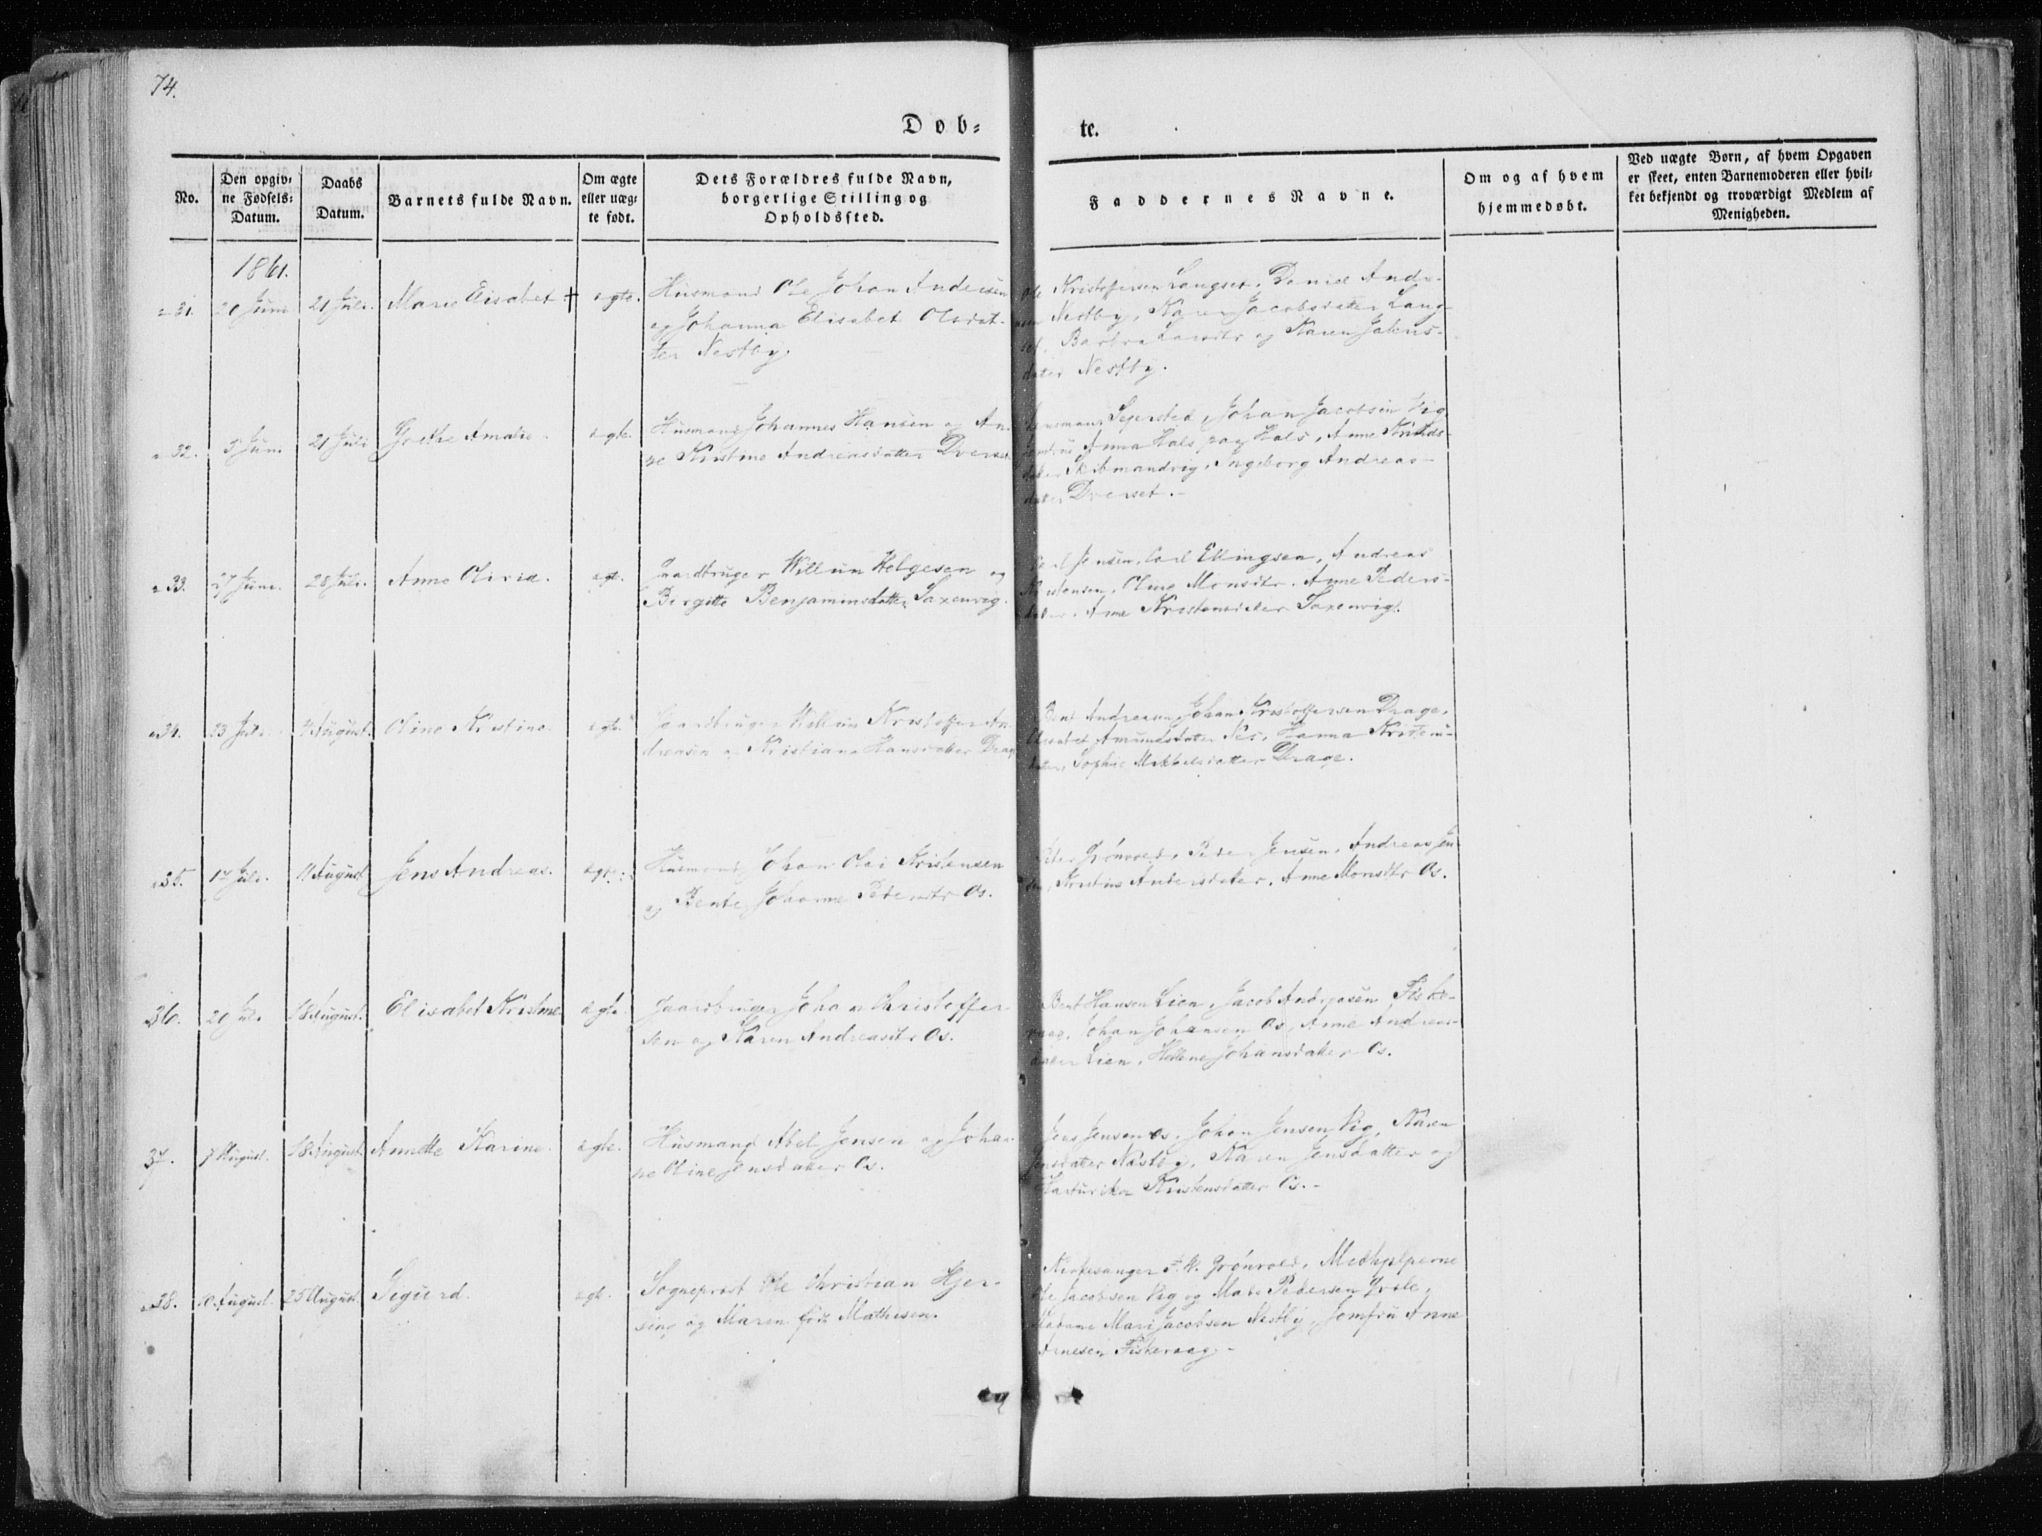 74.
Døb-
te.
No.
Den opgiv-
ne Fødsels-
Datum.
Daabs
Datum.
Barnets fulde Navn.
Om ægte
eller uæg-
te født.
Dets Forældres fulde Navn,
borgerlige Stilling og
Opholdssted.
Faddernes Navne.
Om og af hvem
hjemmedøbt.
Ved uægte Børn, af hvem Opgaven
er skeet, enten Barnemoderen eller hvil-
ket bekjendt og troværdigt Medlem af
Menigheden.
1861.
31. 20 Juni 21 Juli Marie Elisabet + ægte. Husmand Ole Johan Andersen
og Johanna Elisabet Olsdat-
ter Nestby
Kristoffersen Langset, Daniel Andr-
Nestby, Karen Jacobsdatter Lang-
set, Karen
Nestby.
32. 5 Juni 21 Juli Grethe Amalie. ægte. Husmand Johannes Hansen og An-
ne Kristine Andreasdatter Dverset
Segersted, Johan Jacobsen Vig,
Anna Hals, Hals, Anne
Ingeborg Andreas-
datter Dverset.
33. 27 Juni. 28 Juli. Anne Olivia. ægte. Gaardbruger Willum Helgesen og
Birgitte Benjaminsdatter Saxenvig.
Jensen, Carl Ellingsen, Andreas
Kristensen, Oline Monsdtr. Anne Peders-
datter, Anne Kristensdatter Saxenvig.
34. 23 Juli 4 August. Oline Kristine ægte. Gaardbruger Willum Kristoffer An-
dreasen og Kristiane Hansdatter Drage
Bent Andreasen, Johan Kristoffersen Drage,
Elisabet Amundsdatter Nes, Hanna Kristens-
datter, Sophie Mikkelsdatter Drage.
35. 17 Juli. 11 August. Jens Andreas. ægte. Husmand Johan Olai Kristensen
og Bente Johanne Pedersdtr Os.
Grønvold, Peder Jensen, Andreas Jen-
sen, Kristine Andersdatter, Anne Monsdtr Os.
36. 20 Juli 18 August. Elisabet Kristine ægte. Gaardbruger Johan Christoffer-
sen og Karen Andreasdtr Os.
Bent Hansen Lien, Jacob Andreasen Fiske-
vaag, Johan Johansen Os, Anne Andreas-
datter Lien, Hellene Johansdatter Os.
37. 7 August. 18 August. Annette Karine. ægte. Husmand Abel Jensen og Johan-
ne Oline Jensdatter Os.
Jens Jensen Os, Johan Jensen Vig, Karen
Jensdatter Nestby, Karen Jensdatter og
Kristensdatter Os.-
38. 10 August. 25 August Sigurd. ægte. Sogneprest Ole Christian Hjer-
sing og Maren født Mathisen.
Kirkesanger F. W. Grønvold, Medhjelperne
Ole Jacobsen Vig og Mads Pedersen
Madame Mari Jacobsen Nestby, Jomfru Anne
Arnesen Fiskevaag -